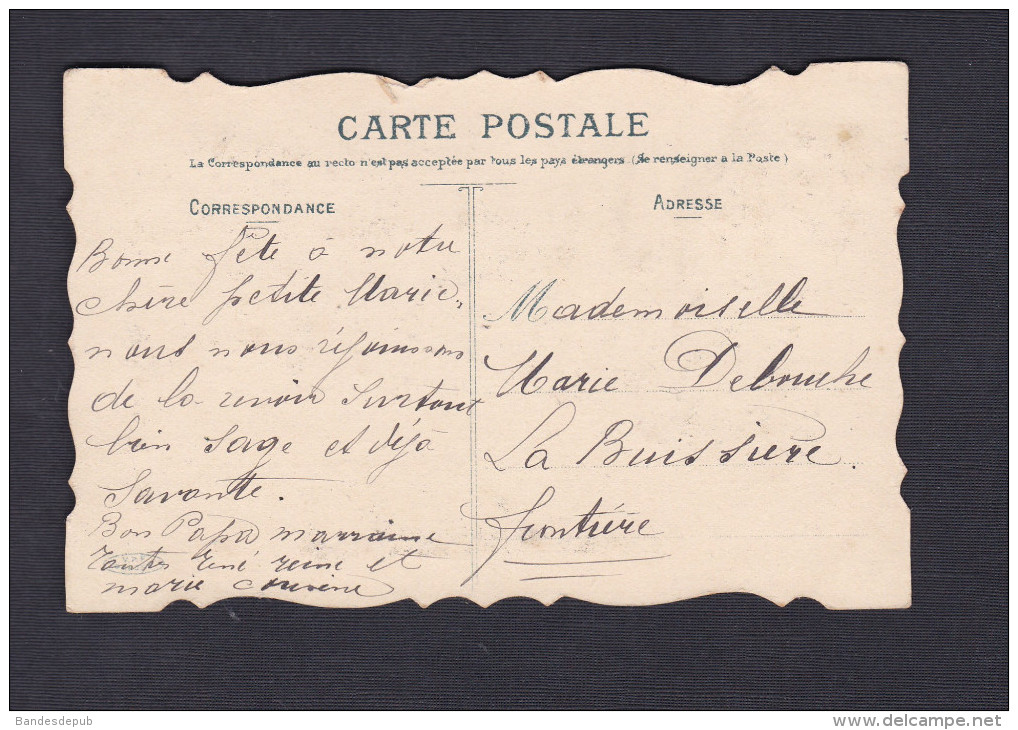 CARTE POSTALE
La Correspondance au recto n'est pas acceptée par tous les pays étrangers (Se renseigner à la Poste)
CORRESPONDANCE
Bonne fête à notre
chère petite Marie,
nous nous réjouissons
de la revoir surtout
bien sage et déjà
savante.
Bon Papa marraine
René reine et
marie cousine
ADRESSE
Mademoiselle
Marie Debouche
La Buissière.
frontière
Bandesdepub
www.delcampe.net